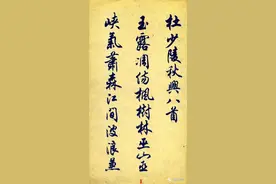 杜少陵秋興八首
玉露凋傷楓樹林巫山巫
峽氣蕭森江間波浪兼